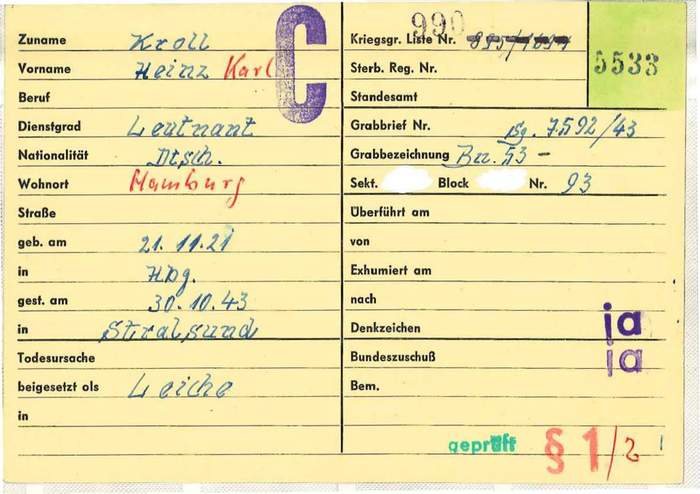 Zuname Kroll
Vorname Heinz Karl
Beruf
Dienstgrad Leutnant
Nationalität Dtsch.
Wohnort Hamburg
Straße
geb. am 21.11.21
in Hbg.
gest. am 30.10.43
in Stralsund
Todesursache
beigesetzt als Leiche
in
C
990
Kriegsgr. Liste Nr.
5533
Sterb. Reg. Nr.
Standesamt
Grabbrief Nr. Bg. 7592/43
Grabbezeichnung Bz. 53 -
Sekt. Block Nr. 93
Überführt am
von
Exhumiert am
nach
Denkzeichen ja
Bundeszuschuß ja
Bem.
geprüft § 1/2